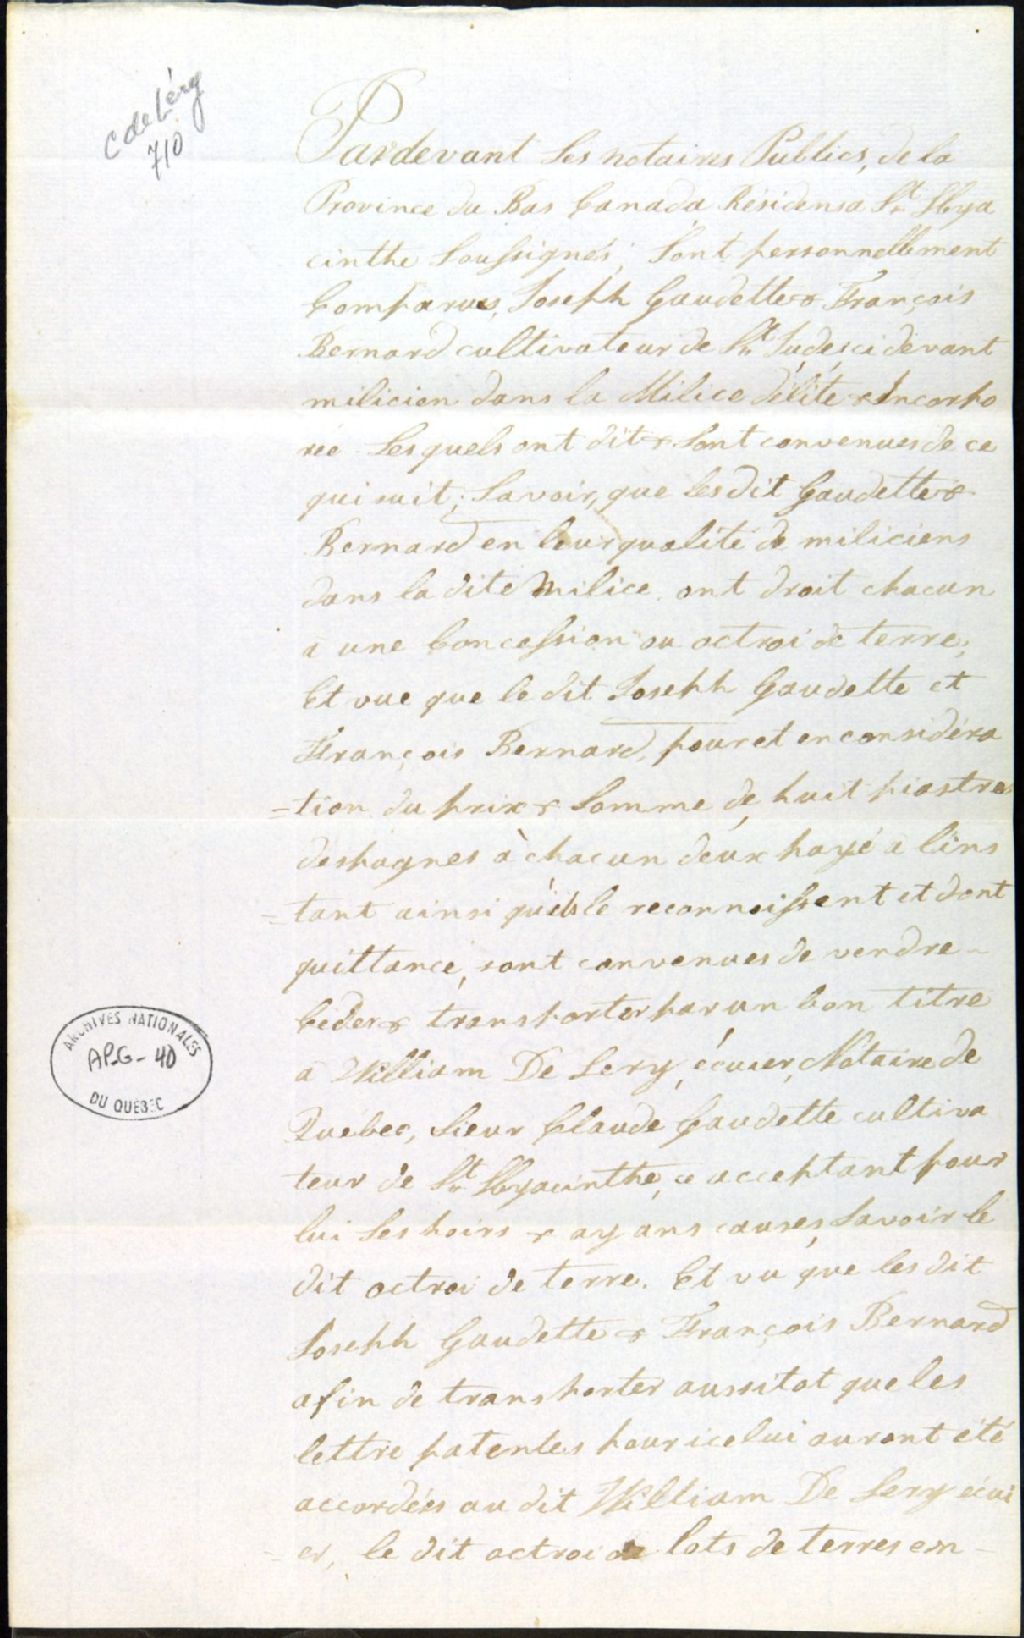 C de Léry
710
Pardevant les notaires Publics, de la
Province du Bas Canada Résidens a St. Hya
cinthe Soussignés; Sont personnellement
Comparues, Joseph Gaudette & François
Bernard cultivateur de St. Jude, ci devant
milicien dans la Milice d'élite & Incorpo
rée Lesquels ont dit & sont convenues de ce
qui suit; Savoir, que les dit Gaudette &
Bernard en leur qualité de miliciens
dans la dite Milice, ont droit chacun
a une Concession ou octroi de terre,
Et vue que le dit Joseph Gaudette et
François Bernard, pour et en considéra
=tion du prix & Somme de huit piastres
despagnes à chacun deux payé a lins
=tant ainsi quils le reconnoissent et dont
quittance, sont convenues de vendre -
Céder & transporter par un bon titre
a William De Lery, écuier, Notaire de
Québec, Sieur Claude Gaudette cultiva
teur de St. Hyacinthe, ce acceptant pour
lui ses hoirs & ayans causes, Savoir le
dit octroi de terre. Et vu que les dit
Joseph Gaudette & François Bernard
afin de transporter aussitot que les
lettre patentes pour icelui auront été
accordées au dit William De Lery écui
=er, le dit octroi de lots de terres en -
ARCHIVES NATIONALES
AP.G - 40
DU QUÉBEC